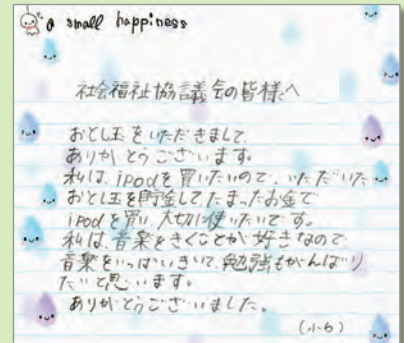 a small happiness
社会福祉協議会の皆様へ
おとし玉をいただきまして、
ありがとうございます。
私は、ipodを買いたいので、いただいた
おとし玉を貯金してたまったお金で
ipodを買い、大切に使いたいです。
私は、音楽をきくことが好きなので
音楽をいっぱいきいて、勉強もがんばり
たいと思います。
ありがとうございました。
(小6)